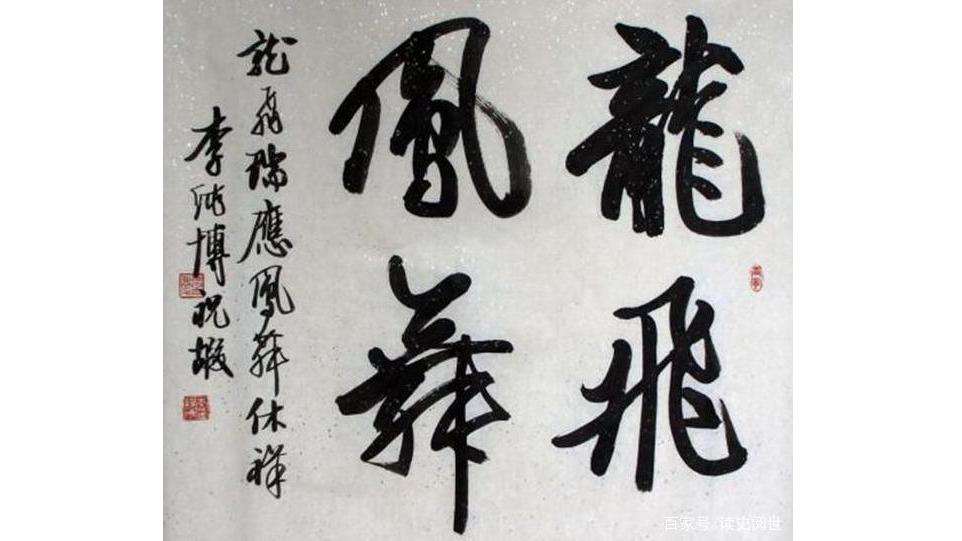 龍飛
鳳舞
龍飛瑞應鳳舞休祥
李博祝嘏
百家号/读史阅世